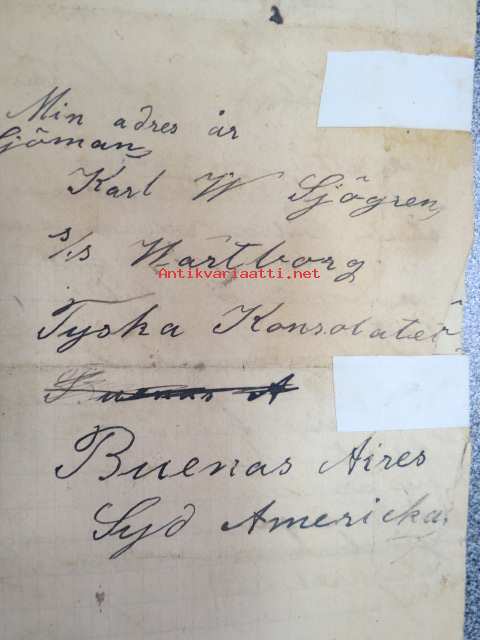 Min adres är
Sjöman
Karl W Sjögren
s/s Wartborg
Antikvariaatti.net
Tyska Konsolatet
Buenas A
Buenas Aires
Syd Americka